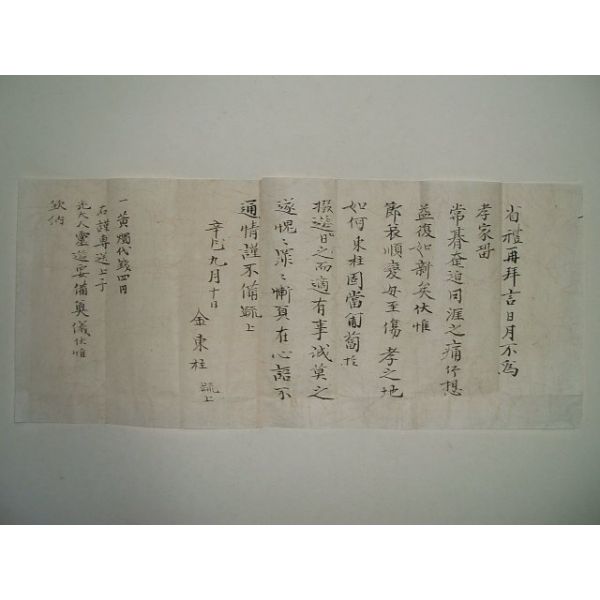 省禮再拜言日月不爲
孝家
常朞奄迫罔涯之痛伏想
益復如新矣伏惟
節哀順變毋至傷孝之地
如何東柱固當匍匐於
撥筵日之而適有事誠莫之
遂愧々深々慚頁在心語不
通情謹不備疏上
辛 九月十日
金東柱 疏上
一黃燭代錢四円
右謹專送上于
先大人靈筵妥備奠儀伏惟
欽納